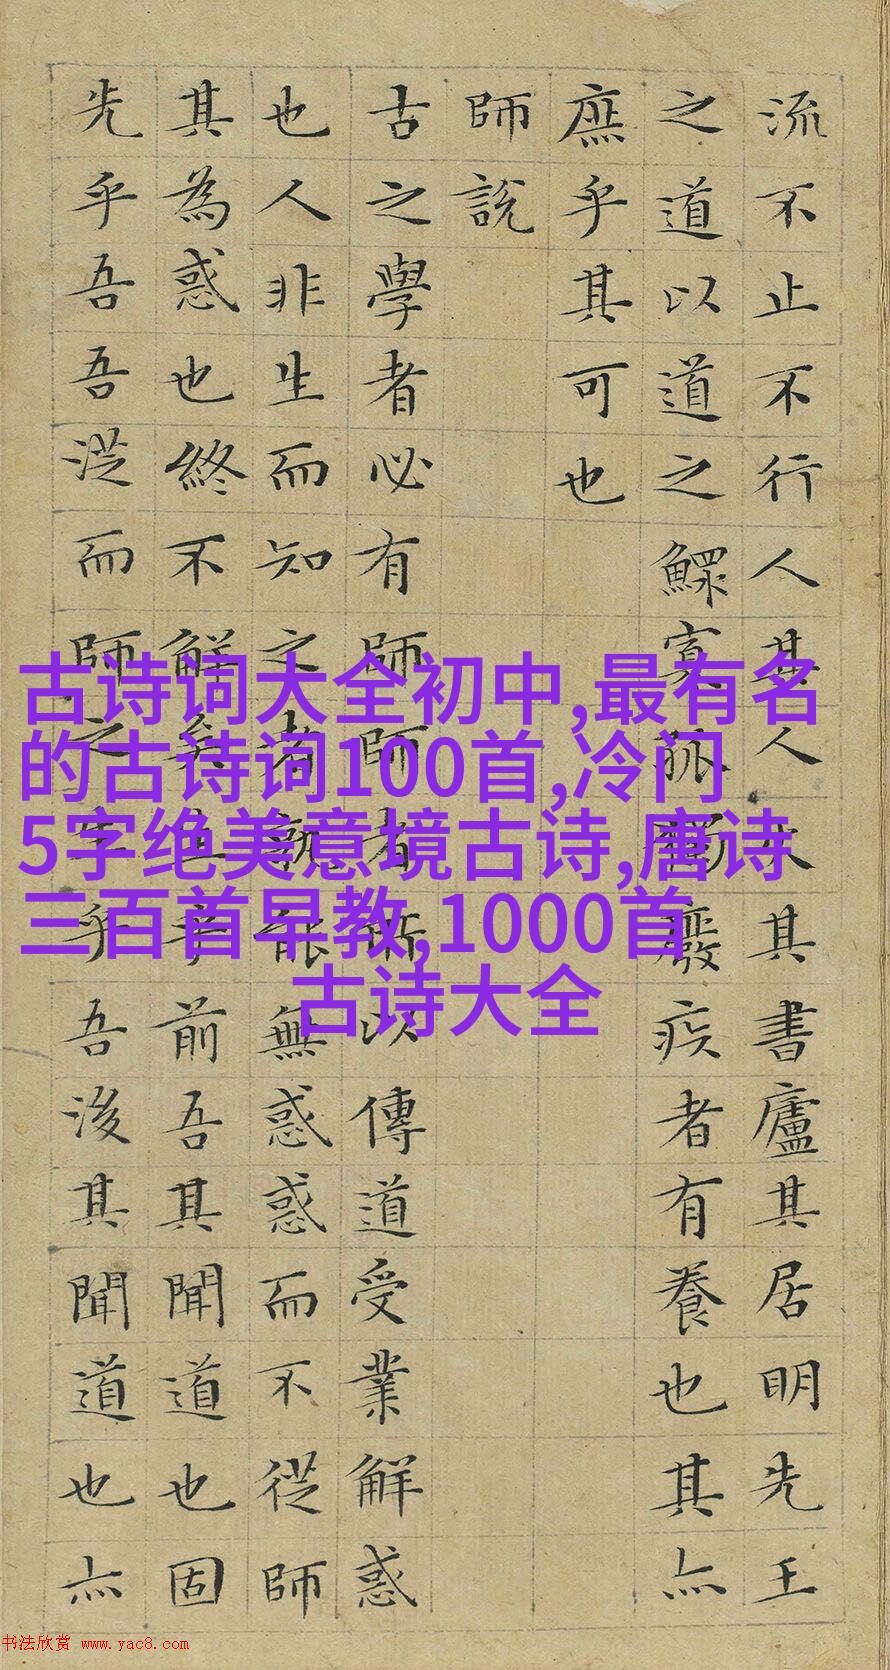 流不止不行人其人火其書廬其居明先王
之道以道之鰥寡孤獨廢疾者有養也其亦
庶乎其可也
師說
古之學者必有師師者所以傳道受業解惑
也人非生而知之者孰能無惑惑而不從師
其為惑也終不解矣生乎前吾其聞道也固
先乎吾吾從而師之生乎吾後其聞道也亦
古诗词大全初中,最有名
的古诗词100首,冷门
5字绝美意境古诗,唐诗
三百首早教,1000首
古诗大全
书法欣赏 www.yac8.com